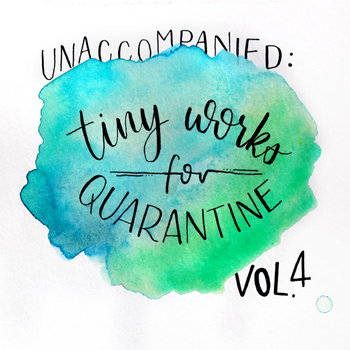 UNACCOMPANIED:
tiny works
for
QUARANTINE
VOL.4